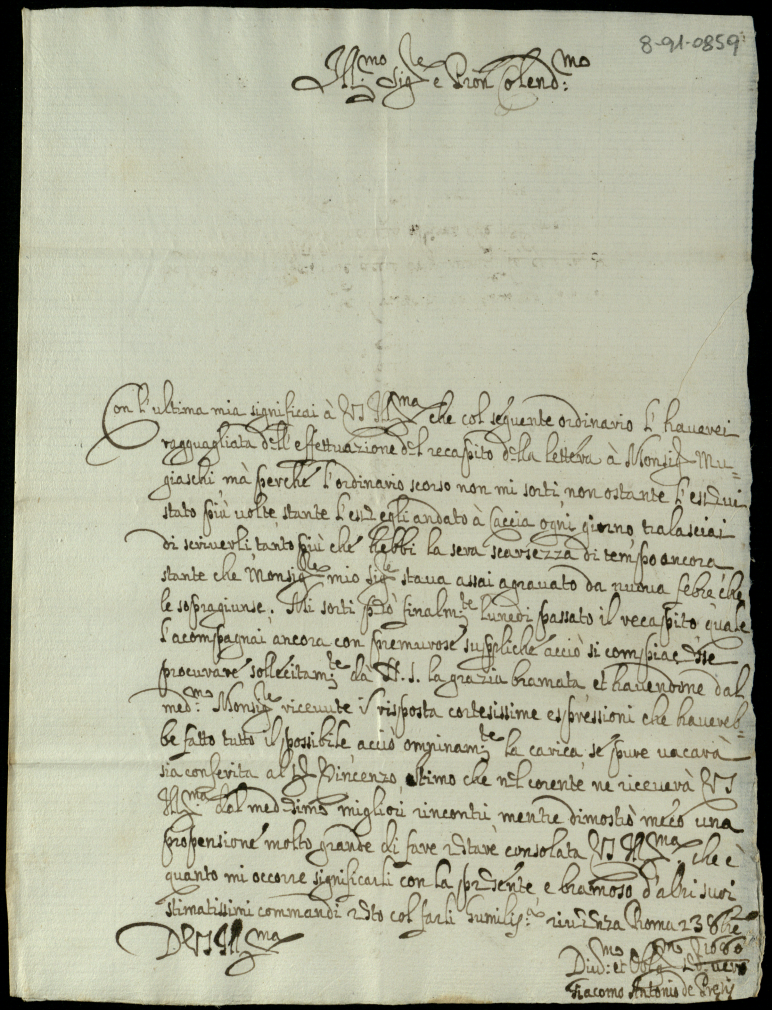 8-91-0859
Ill:mo Sig:re e Pron Colend:mo
Con l'ultima mia significai à VS Ill:ma che col seguente ordinario l'haverei
ragguagliata dell'effettuazione del recapito della lettera à Monsig:r Mu=
giaschi mà perche l'ordinario scorso non mi sortì non ostante l'esservi
stato più volte stante l'esser egli andato à caccia ogni giorno tralasciai
di scriverli tanto più che hebbi la sera scarsezza di tempo ancora
stante che Monsig:re mio sig:re stava assai agravato da nuova febre che
le sopragiunse. Mi sortì però finalm:te lunedi passato il recapito quale
l'acompagnai ancora con premurose suppliche acciò si compiacesse
procurare sollecitam:te dà N. S. la grazia bramata et havendone dal
med:mo Monsig:re ricevute in risposta cortesissime espressioni che havereb=
be fatto tutto il possibile acciò omninam:te la carica se pure vacarà
sia conferita al Sig:r Vincenzo stimo che nel corente ne riceverà VS
Ill:ma dal medesimo migliori rincontri mentre dimostrò meco una
propensione molto grande di fare restare consolata VS Ill:ma che è
quanto mi occorre significarli con la presente e bramoso d'altri suoi
stimatissimi commandi resto col farli humiliss:a riverenza Roma 23 8bre
Di VS Ill:ma
Div:mo et Oblig:mo Ser:re vero
Giacomo Antonio de